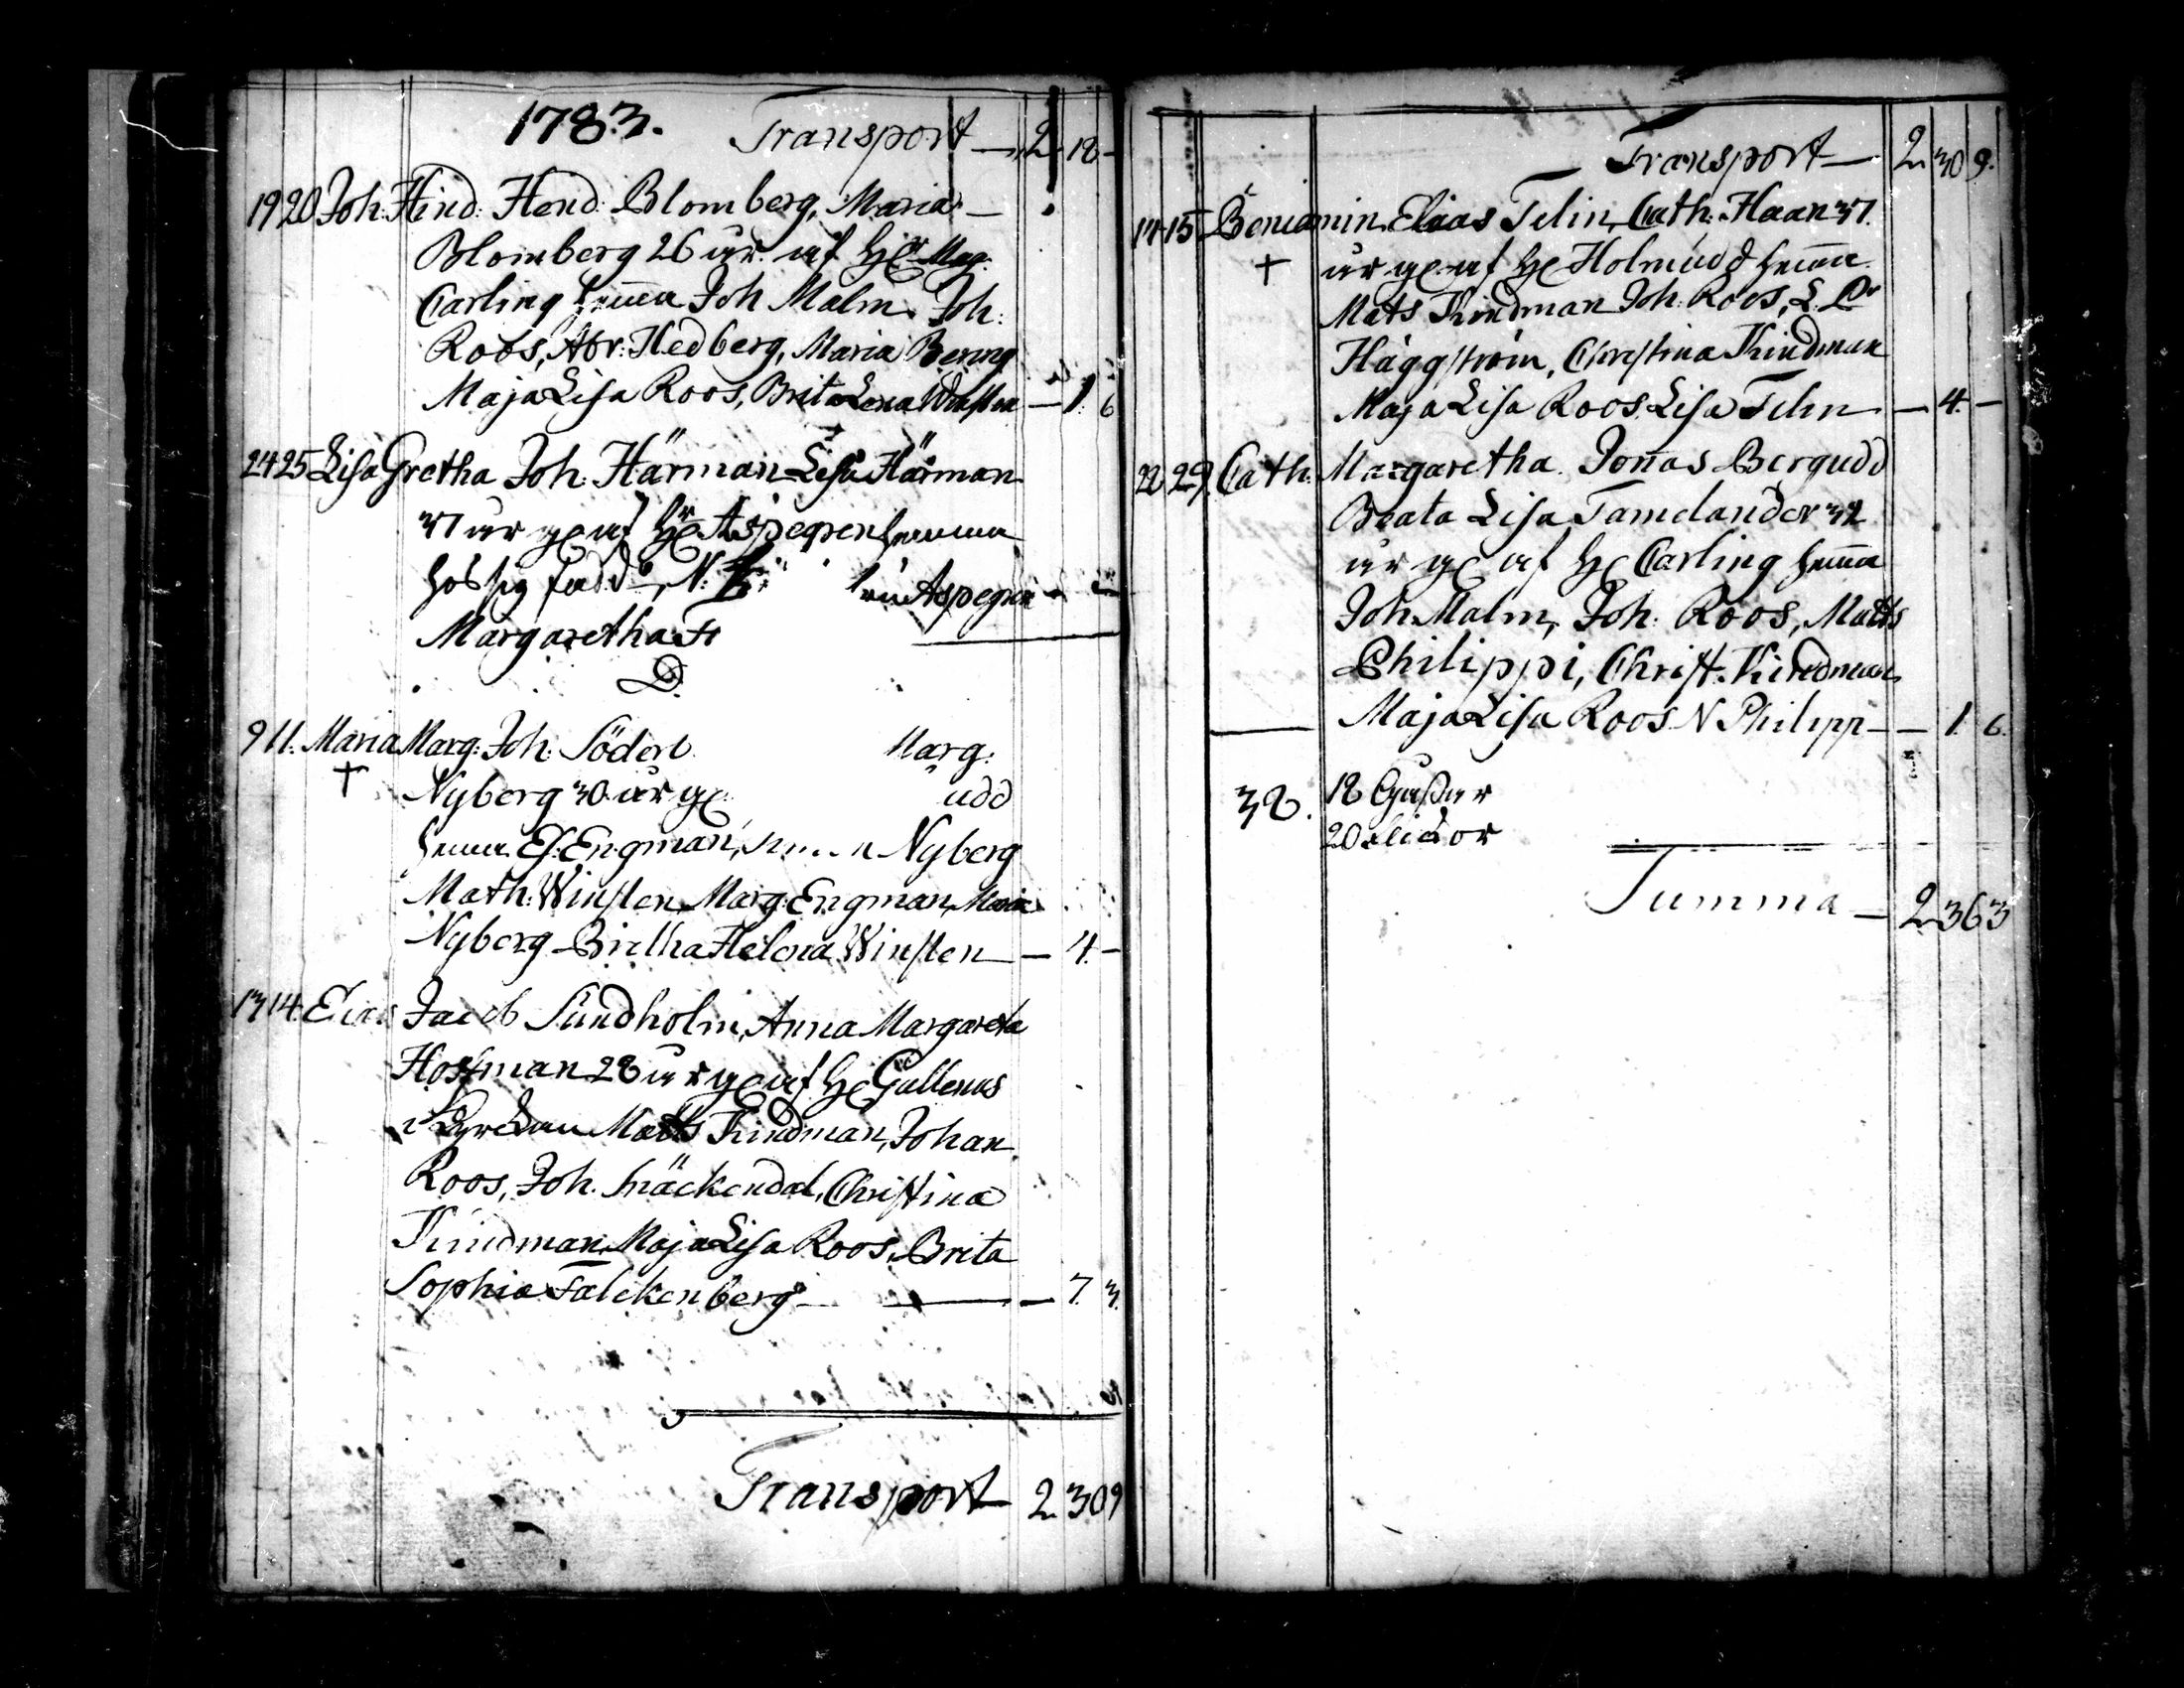 1783. Transport — 2 18 –
19 20 Joh: Hind: Hend: Blomberg, Maria
Blomberg 26 år af Hr Mag:
Carling hema Joh Malm Joh:
Roos, Abr: Hedberg, Maria Bering
Maja Lisa Roos, Brita Lena — 1. 6
24 25 Lisa Gretha Joh: Härman Lisa Härman
37 år af Hr Aspegren hemma
N: Aspegren
Margaretha
D.
9 11. Maria Marg: Joh: Söderb Marg:
† Nyberg 30 år udd
Engman, Nyberg
Math: Winsten, Marg: Engman, Maria
Nyberg Birtha Helena Winsten — 4 –
13 14. Elias Jacob Sundholm, Anna Margareta
Hoffman 28 år af Gallenus
Matts Kindman, Johan
Roos, Joh. Snäckendal, Christina
Kindman, Maja Lisa Roos, Brita
Sophia Falckenberg — 7. 3.
Transport 2 30 9
Transport — 2 30 9.
14 15 Beniamin. Elias Telin, Cath: Haan 37.
† år af Holmudd hema
Mats Kindman Joh: Roos,
Häggström, Christina Kindman
Maja Lisa Roos Lisa Telin — 4. –
22 29. Cath: Margaretha. Jonas Bergudd
Beata Lisa Tamelander 32
år af Carling hema
Joh Malm, Joh: Roos, Matts
Philippi, Christ: Kindman
Maja Lisa Roos N Philipp — 1. 6.
38. 18 Gåßar
20 flickor
Summa — 2 36 3